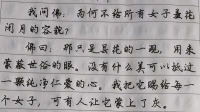 我问佛：为何不给所有女子羞花
闭月的容貌？
佛曰：那只是昙花的一现，用来
蒙蔽世俗的眼。没有什么美可以抵过
一颗纯净仁爱的心。我把它赐给每一
个女子，可有人让它蒙上了灰。